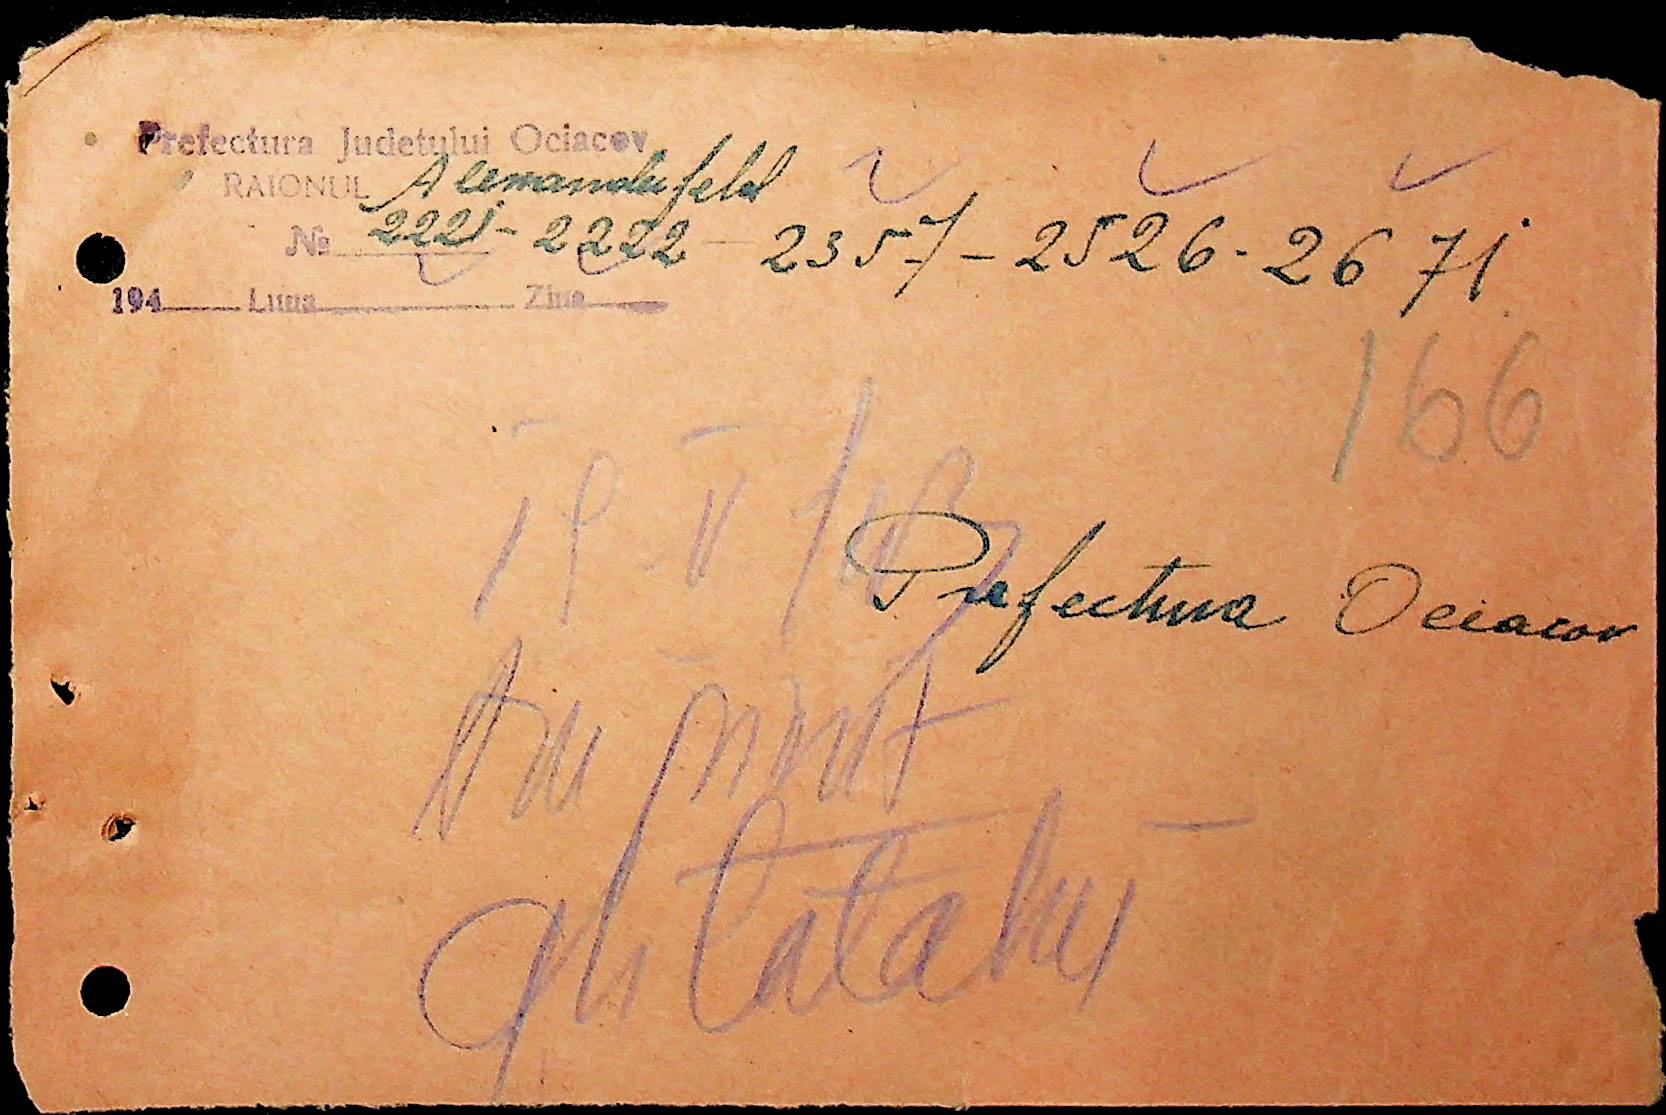 Prefectura Judetului Ociacov
RAIONUL Alemandufeld
№ 2221 - 2222 - 2357 - 2526 - 2671
194 Luna Ziua
166
19 - V
Prefectura Ociacov
Am primit